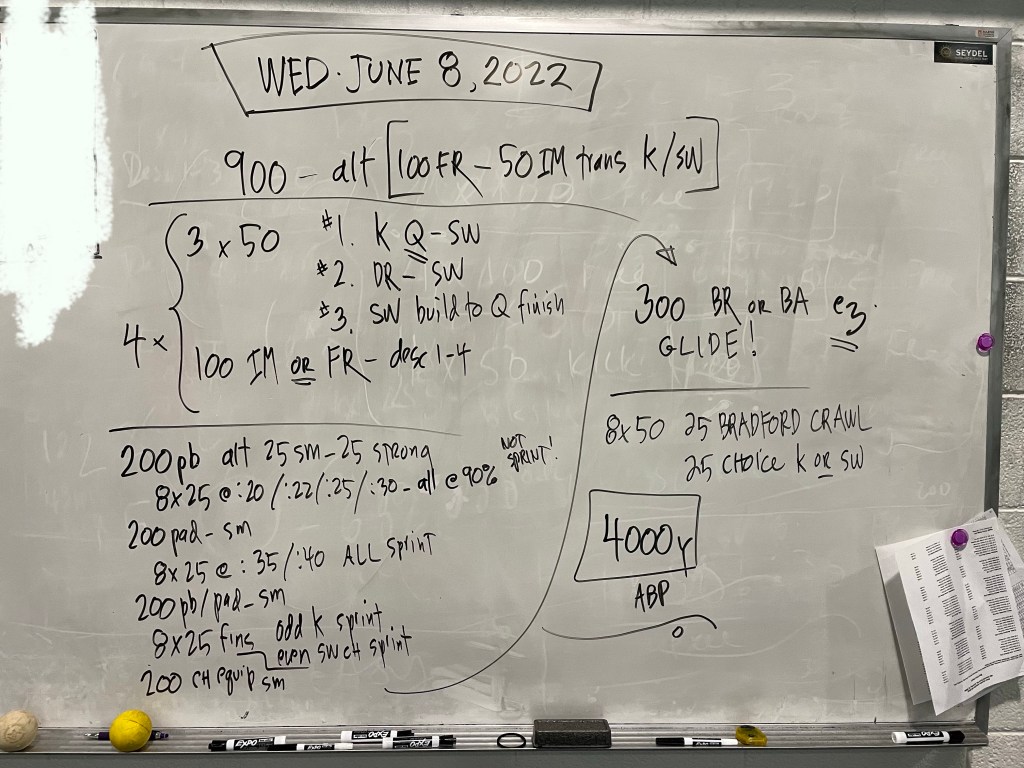 SEYDEL
WED. JUNE 8, 2022
900 - alt [100 FR - 50 IM trans K/SW]
4 x
3 x 50 #1. K Q - SW
#2. DR - SW
#3. SW build to Q finish
100 IM OR FR - desc 1-4
200 pb alt 25 sm - 25 strong
8x25 @ :20 / :22 / :25 / :30 - all @ 90% NOT SPRINT!
200 pad - sm
8x25 @ :35 / :40 ALL SPRINT
200 pb/pad - sm
8x25 fins odd K sprint
even SW CH sprint
200 CH equip sm
300 BR OR BA ez.
GLIDE!
8x50 25 BRADFORD CRAWL
25 CHOICE K OR SW
4000y
ABP
EXPO
EXPO
EXPO
EXPO